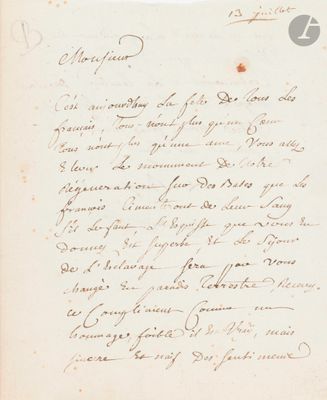 13 juillet
Monsieur
C'est aujourdhuy la fête de tous les
français, tous n'ont plus qu'un Cœur
tous n'ont plus qu'une ame, Vous allez
Elever le monument de notre
Régénération sur des Bases que les
francois Cimenteront de leur Sang
S'il le faut. L'Esquisse que vous En
donnez Est superbe, Et le Séjour
de L'Esclavage sera par vous
changé En paradis Terrestre. Recevez
ce Compliment Comme un
hommage foible il Est Vrai, mais
sincere Et naif Des sentimens